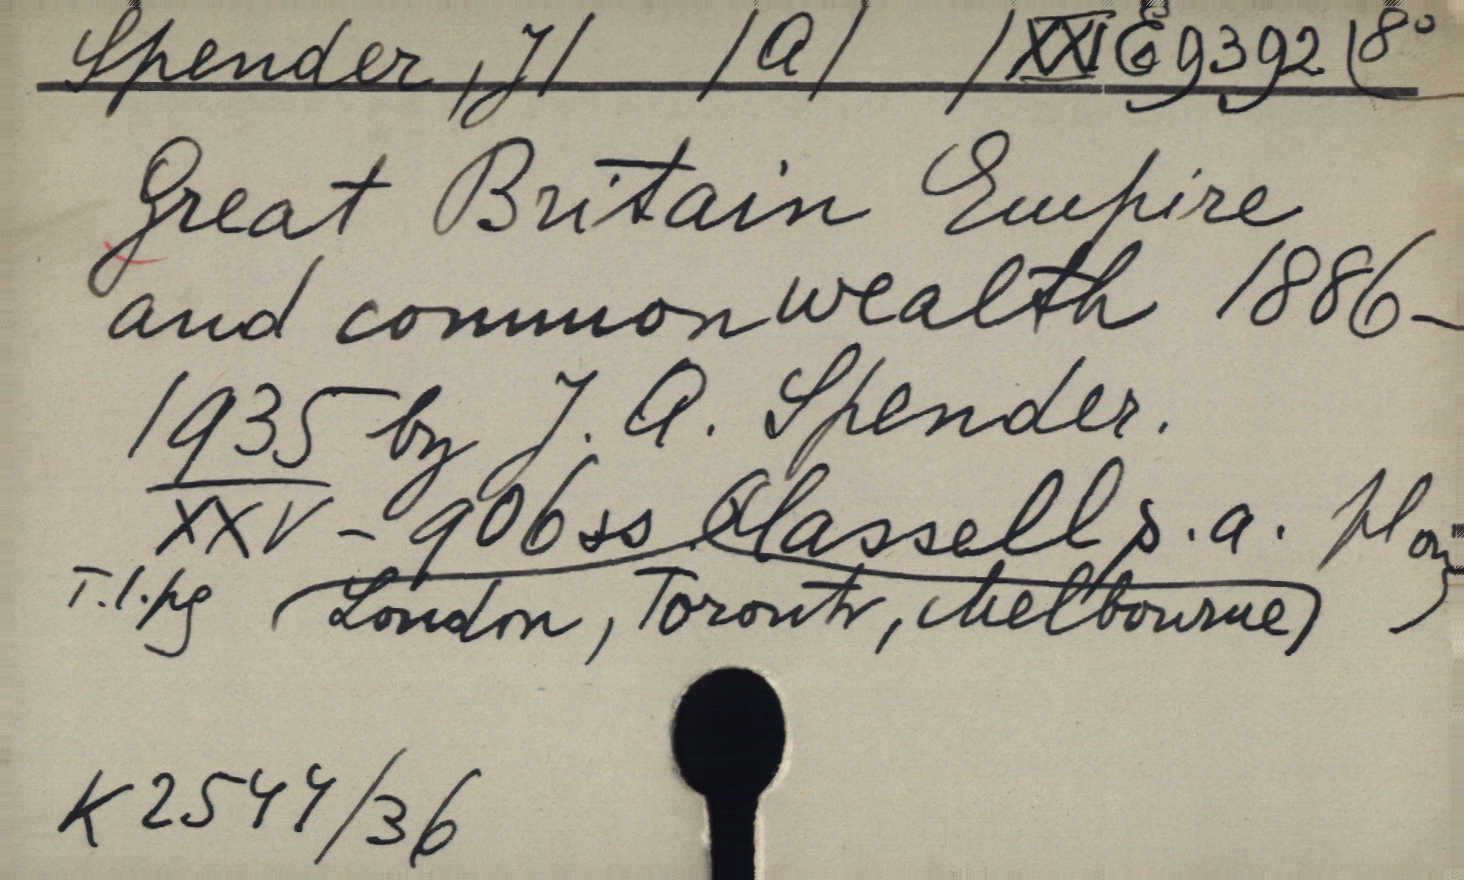 Spender, J/ /A/ /XXI E 9392 /8°
Great Britain Empire
and commonwealth 1886-
1935 by J. A. Spender.
XXV - 906 ss Classell s.a.
T.l.pg (London, Toronto, Melbourne)
K 2544/36